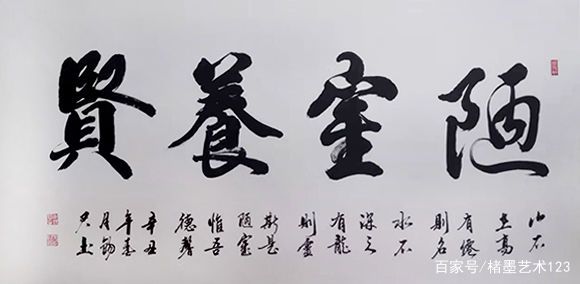 陋室養賢
山不
在高
有僊
則名
水不
深
有龍
則靈
斯是
陋室
惟吾
德馨
辛丑
年春
月
百家号/楮墨艺术123